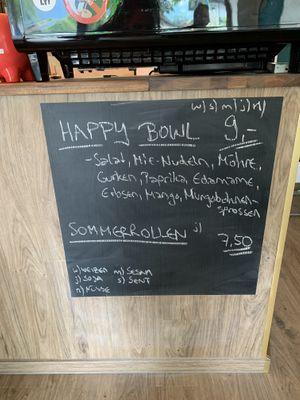 w) s) m) j) n)
HAPPY BOWL 9,-
- Salat, Mie-Nudeln, Möhre,
Gurken, Paprika, Edamame,
Erbsen, Mango, Mungobohnen-
sprossen
SOMMERROLLEN j) 7,50
w) WEIZEN m) SESAM
j) SOJA s) SENF
n) NÜSSE